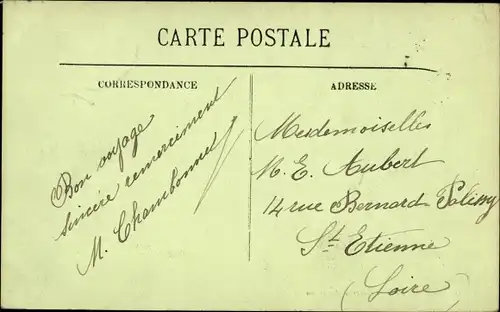 CARTE POSTALE
CORRESPONDANCE
Bon voyage
sincère remerciment
M. Chambonnet
ADRESSE
Mesdemoiselles
M. E. Aubert
14 rue Bernard Palissy
St Etienne
(Loire)